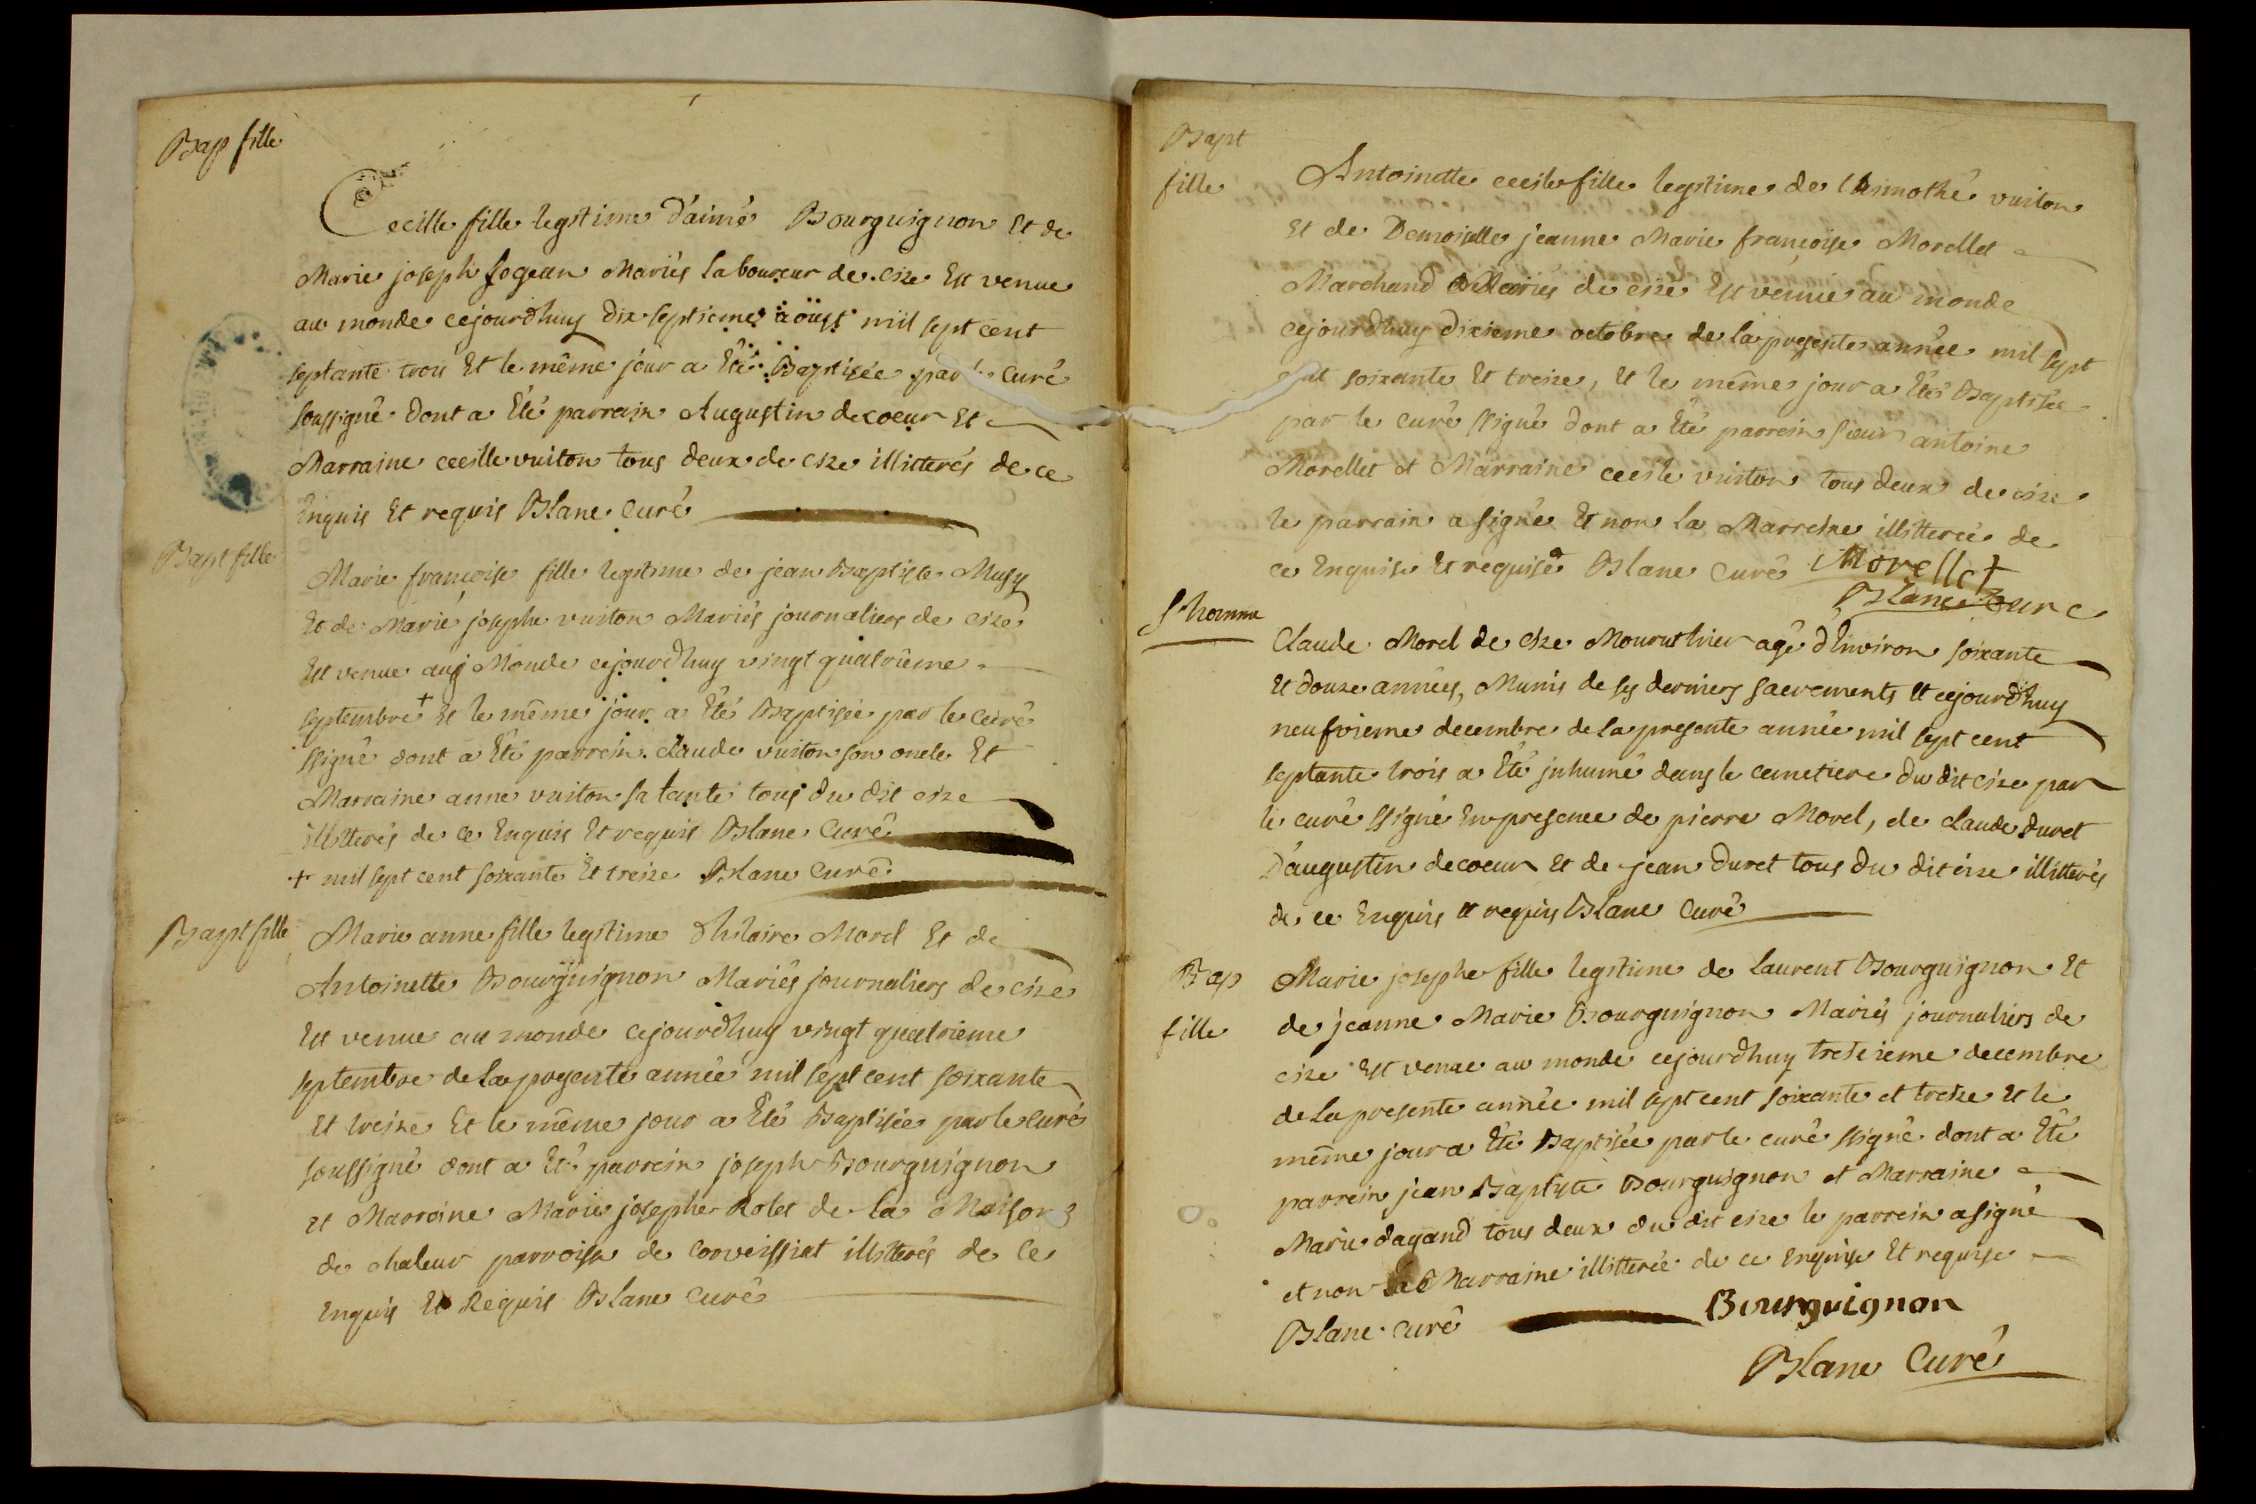 Bap fille
Cecille fille legitime d'aimé Bourguignon Et de
Marie joseph Jogean Mariés laboureur de cize Est venue
au monde cejourdhuy dix septieme aoust mil sept cent
septante trois Et le même jour a Eté Baptisée par le Curé
soussigné dont a Eté parrain Augustin decoeur Et
Marraine cecille vuiton tous deux de cize illitterés de ce
Enquis Et requis Blanc Curé
Bapt fille
Marie françoise fille legitime de jean Baptiste Musy
Et de Marie josephe vuiton Mariés journaliers de cize
Est venue au Monde cejourdhuy vingt quatrieme
septembre + Et le même jour a Eté Baptisée par le curé
ssigné dont a Eté parrein claude vuiton son oncle Et
Marraine anne vuiton sa tante tous du dit cize
illitterés de ce Enquis Et requis Blanc Curé
+ mil sept cent soixante Et treize Blanc Curé
Bapt fille
Marie anne fille legitime d'hilaire Morel Et de
Antoinette Bourguignon Mariés journaliers de cize
Est venue au monde cejourdhuy vingt quatrieme
septembre de la presente année mil sept cent soixante
Et treize Et le même jour a Eté Baptisée par le curé
soussigné dont a Eté parrein joseph Bourguignon
et Marraine Marie josephe Rolet de la Maison
de chaleur parroisse de corveissiat illitterés de ce
Enquis Et Requis Blanc Curé
Bapt
fille
Antoinette cecile fille legitime de thimothé vuiton
Et de Demoiselle jeanne Marie françoise Morellet
Marchand Mariés de cize Est venue au monde
cejourdhuy dixieme octobre de la presente année mil sept
cent soixante Et treize, Et le même jour a Eté Baptisée
par le curé ssigné dont a Eté parrein sieur antoine
Morellet et Marraine cecile vuiton tous deux de cize
le parrain a signé Et non la Marreine illitterée de
ce Enquise Et requise Blanc Curé Morellet
Blanc Curé
S homme
Claude Morel de cize Mourut hier agé d'Environ soixante
Et douze années, Munis de ses derniers sacrements Et cejourdhuy
neufvieme decembre de la presente année mil sept cent
septante trois a Eté jnhumé dans le cemetiere du dit cize par
le curé ssigné En presence de pierre Morel, de claude duret
D'augustin decoeur Et de jean duret tous du dit cize illitterés
de ce Enquis et requis Blanc Curé
Bap
fille
Marie josephe fille legitime de laurent Bourguignon Et
de jeanne Marie Bourguignon Mariés journaliers de
cize Est venue au monde cejourdhuy treizieme decembre
de la presente année mil sept cent soixante et treize Et le
même jour a Eté Baptisée par le curé ssigné dont a Eté
parrein jean Baptiste Bourguignon et Marraine
Marie dagand tous deux du dit cize le parrein a signé
et non la Marraine illitterée de ce enquise Et requise
Blanc curé Bourguignon
Blanc Curé